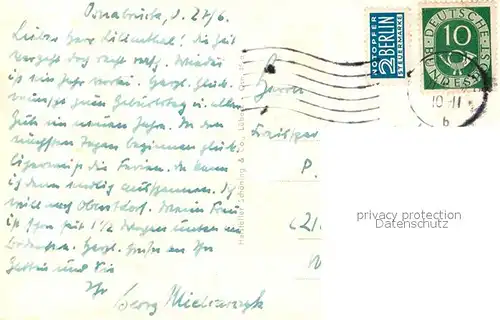 Osnabrück, d. 27/6.
Lieber Herr Lilienthal! Die Zeit
vergeht doch recht rasch. Wieder
ist ein Jahr vorbei. Herzl. Glück-
wünsche zum Geburtstag u. alles
Gute im neuen Jahre. In den
nächsten Tagen beginnen glück-
licherweise die Ferien. Da kann
ich dann endlich ausspannen. Ich
will nach Oberstdorf. Meine Frau
ist schon seit 1 1/2 Wochen unten am
Bodensee. Herzl. Grüße an Ihre
Gattin und Sie
Ihr
Georg
Herrn
P.
(21
Hartleller Schöning & Co., Lübeck
NOTOPFER
2 BERLIN
STEUERMARKE
DEUTSCHE
10
BUNDESPOST
10-11
b
privacy protection
Datenschutz